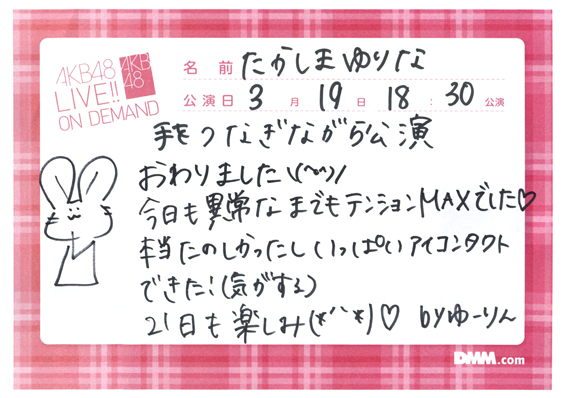 AKB48
LIVE!!
ON DEMAND
AKB
48
名前 たかしまゆりな
公演日 3月19日18:30公演
手をつなぎながら公演
おわりました\(^^)/
今日も異常なまでもテンションMAXでした♡
本当たのしかったしいっぱいアイコンタクト
できた!(気がする)
21日も楽しみ(*^^*)♡ byゆーりん
DMM.com